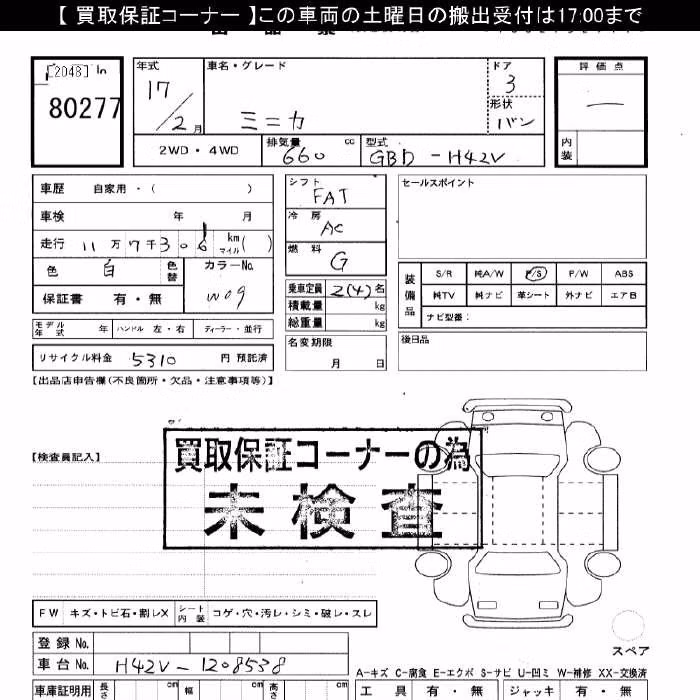 【 買取保証コーナー 】この車両の土曜日の搬出受付は17:00まで
[2048] In
80277
年式
17
/2月
車名・グレード
ミニカ
ドア
3
形状
バン
評価点
―
内装
2WD・4WD
排気量 660 cc
型式 GBD-H42V
車歴 自家用・( )
車検 年 月
走行 11万7千306 km マイル( )
色 白 色替
カラーNo. W09
保証書 有・無
シフト FAT
冷房 AC
燃料 G
乗車定員 2(4)名
積載量 kg
総重量 kg
セールスポイント
装備品
S/R 純A/W P/S P/W ABS
純TV 純ナビ 革シート 外ナビ エアB
ナビ型番:
モデル年式 年 ハンドル 左・右 ディーラー・並行
名変期限 月 日
後日品
リサイクル料金 5310 円 預託済
【出品店申告欄(不良箇所・欠品・注意事項等)】
【検査員記入】
買取保証コーナーの為
未検査
FW キズ・トビ石・割レX シート内装 コゲ・穴・汚レ・シミ・破レ・スレ
スペア
登録No.
車台No. H42V-1208538
A-キズ C-腐食 E-エクボ S-サビ U-凹ミ W-補修 XX-交換済
車庫証明用 長さ cm 幅 cm 高さ cm
工具 有・無 ジャッキ 有・無